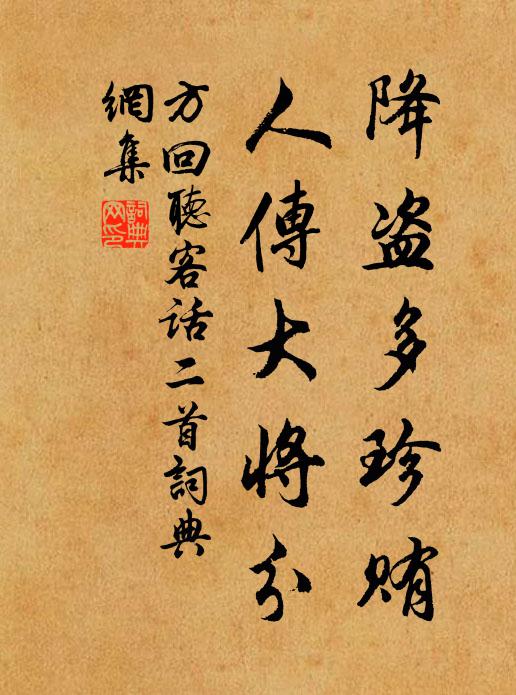 降盗多珍賄
人傳大將分
方回聽客话二首詞典
網集
詞典
网印